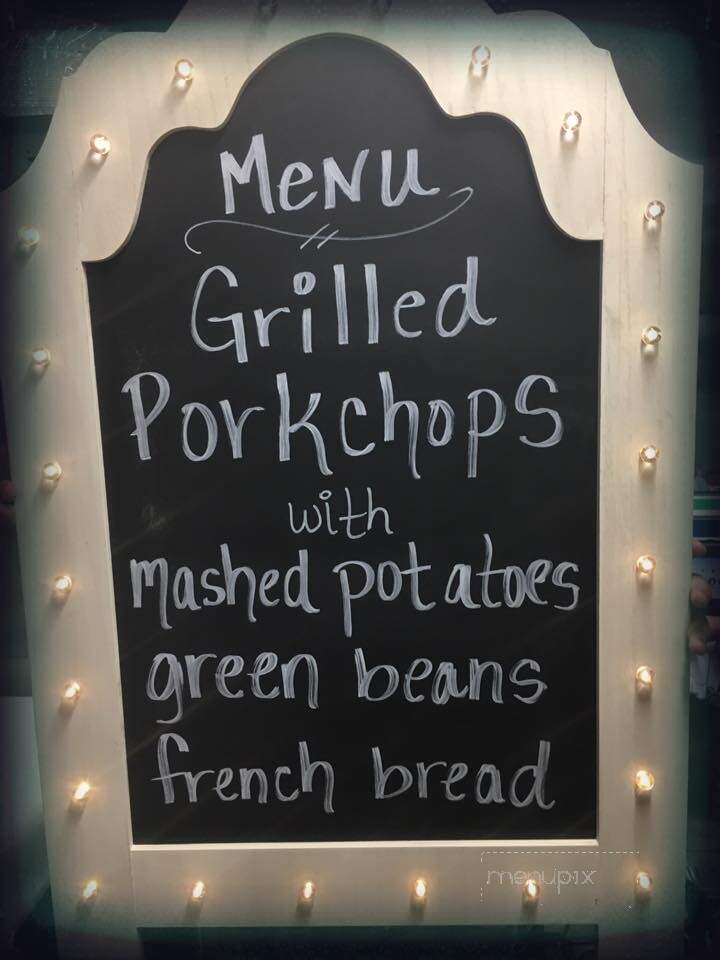 Menu
Grilled
Porkchops
with
mashed potatoes
green beans
french bread
menupix